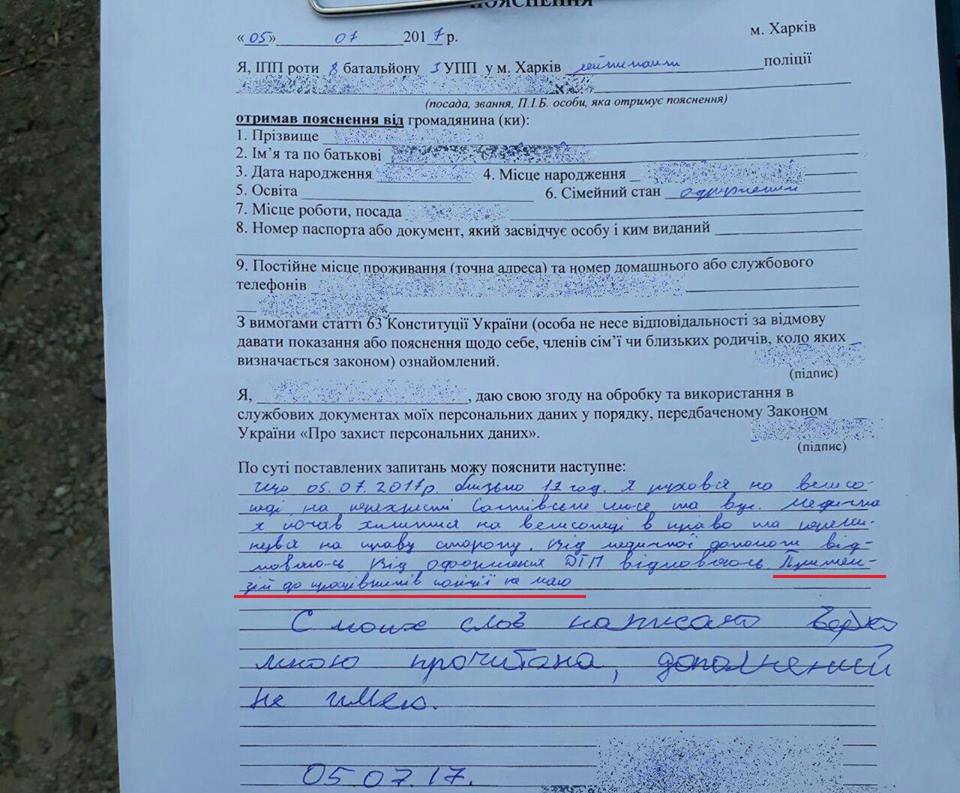 ПОЯСНЕННЯ
«05» 07 2017 р. м. Харків
Я, ІПП роти 8 батальйону 3 УПП у м. Харків лейтенант поліції
(посада, звання, П.І.Б. особи, яка отримує пояснення)
отримав пояснення від громадянина (ки):
1. Прізвище
2. Ім’я та по батькові
3. Дата народження 4. Місце народження
5. Освіта 6. Сімейний стан одружений
7. Місце роботи, посада
8. Номер паспорта або документ, який засвідчує особу і ким виданий
9. Постійне місце проживання (точна адреса) та номер домашнього або службового
телефонів
З вимогами статті 63 Конституції України (особа не несе відповідальності за відмову
давати показання або пояснення щодо себе, членів сім’ї чи близьких родичів, коло яких
визначається законом) ознайомлений.
(підпис)
Я, , даю свою згоду на обробку та використання в
службових документах моїх персональних даних у порядку, передбаченому Законом
України «Про захист персональних даних».
(підпис)
По суті поставлених запитань можу пояснити наступне:
що 05.07.2017р. близько 12 год. я рухався на велоси-
педі на перехресті шосе та вул. Медична
я почав хилитися на велосипеді в право та
на праву сторону. Від медичної допомоги від-
мовляюсь. Від оформлення ДТП відмовляюсь Притен-
зій до працівників поліції не маю
С моих слов написано верно
мною прочитана, дополнений
не имею.
05.07.17.